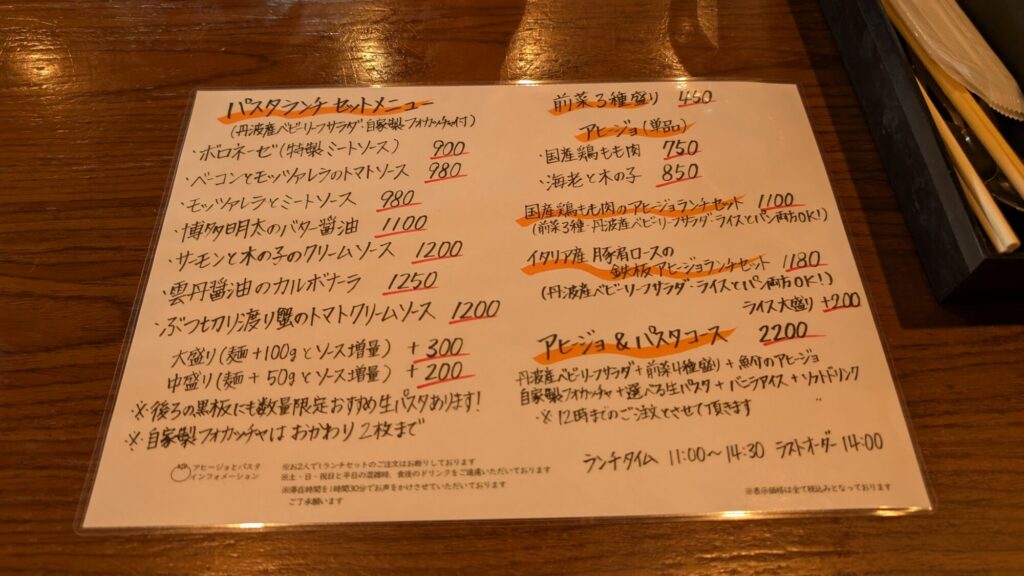 パスタランチ セットメニュー
(丹波産ベビーリーフサラダ・自家製フォカッチャ付)
・ボロネーゼ(特製ミートソース) 900
・ベーコンとモッツァレラのトマトソース 980
・モッツァレラとミートソース 980
・博多明太のバター醤油 1100
・サーモンと木の子のクリームソース 1200
・雲丹醤油のカルボナーラ 1250
・ぶつ切り渡り蟹のトマトクリームソース 1200
大盛り(麺+100gとソース増量) +300
中盛り(麺+50gとソース増量) +200
※後ろの黒板にも数量限定おすすめ生パスタあります!
※自家製フォカッチャは おかわり2枚まで
アヒージョとパスタ
インフォメーション
※お2人で1ランチセットのご注文はお断りしております
※土・日・祝日と平日の混雑時、食後のドリンクをご遠慮いただいております
※滞在時間を1時間30分でお声をかけさせていただいております
ご了承願います
前菜3種盛り 450
アヒージョ(単品)
・国産鶏もも肉 750
・海老と木の子 850
国産鶏もも肉のアヒージョランチセット 1100
(前菜3種・丹波産ベビーリーフサラダ・ライスとパン両方OK!)
イタリア産 豚肩ロースの
鉄板アヒージョランチセット 1180
(丹波産ベビーリーフサラダ・ライスとパン両方OK!)
ライス大盛り +200
アヒージョ&パスタコース 2200
丹波産ベビーリーフサラダ+前菜4種盛り+魚介のアヒージョ
自家製フォカッチャ+選べる生パスタ+バニラアイス+ソフトドリンク
※12時までのご注文とさせて頂きます
ランチタイム 11:00〜14:30 ラストオーダー 14:00
※表示価格は全て税込みとなっております